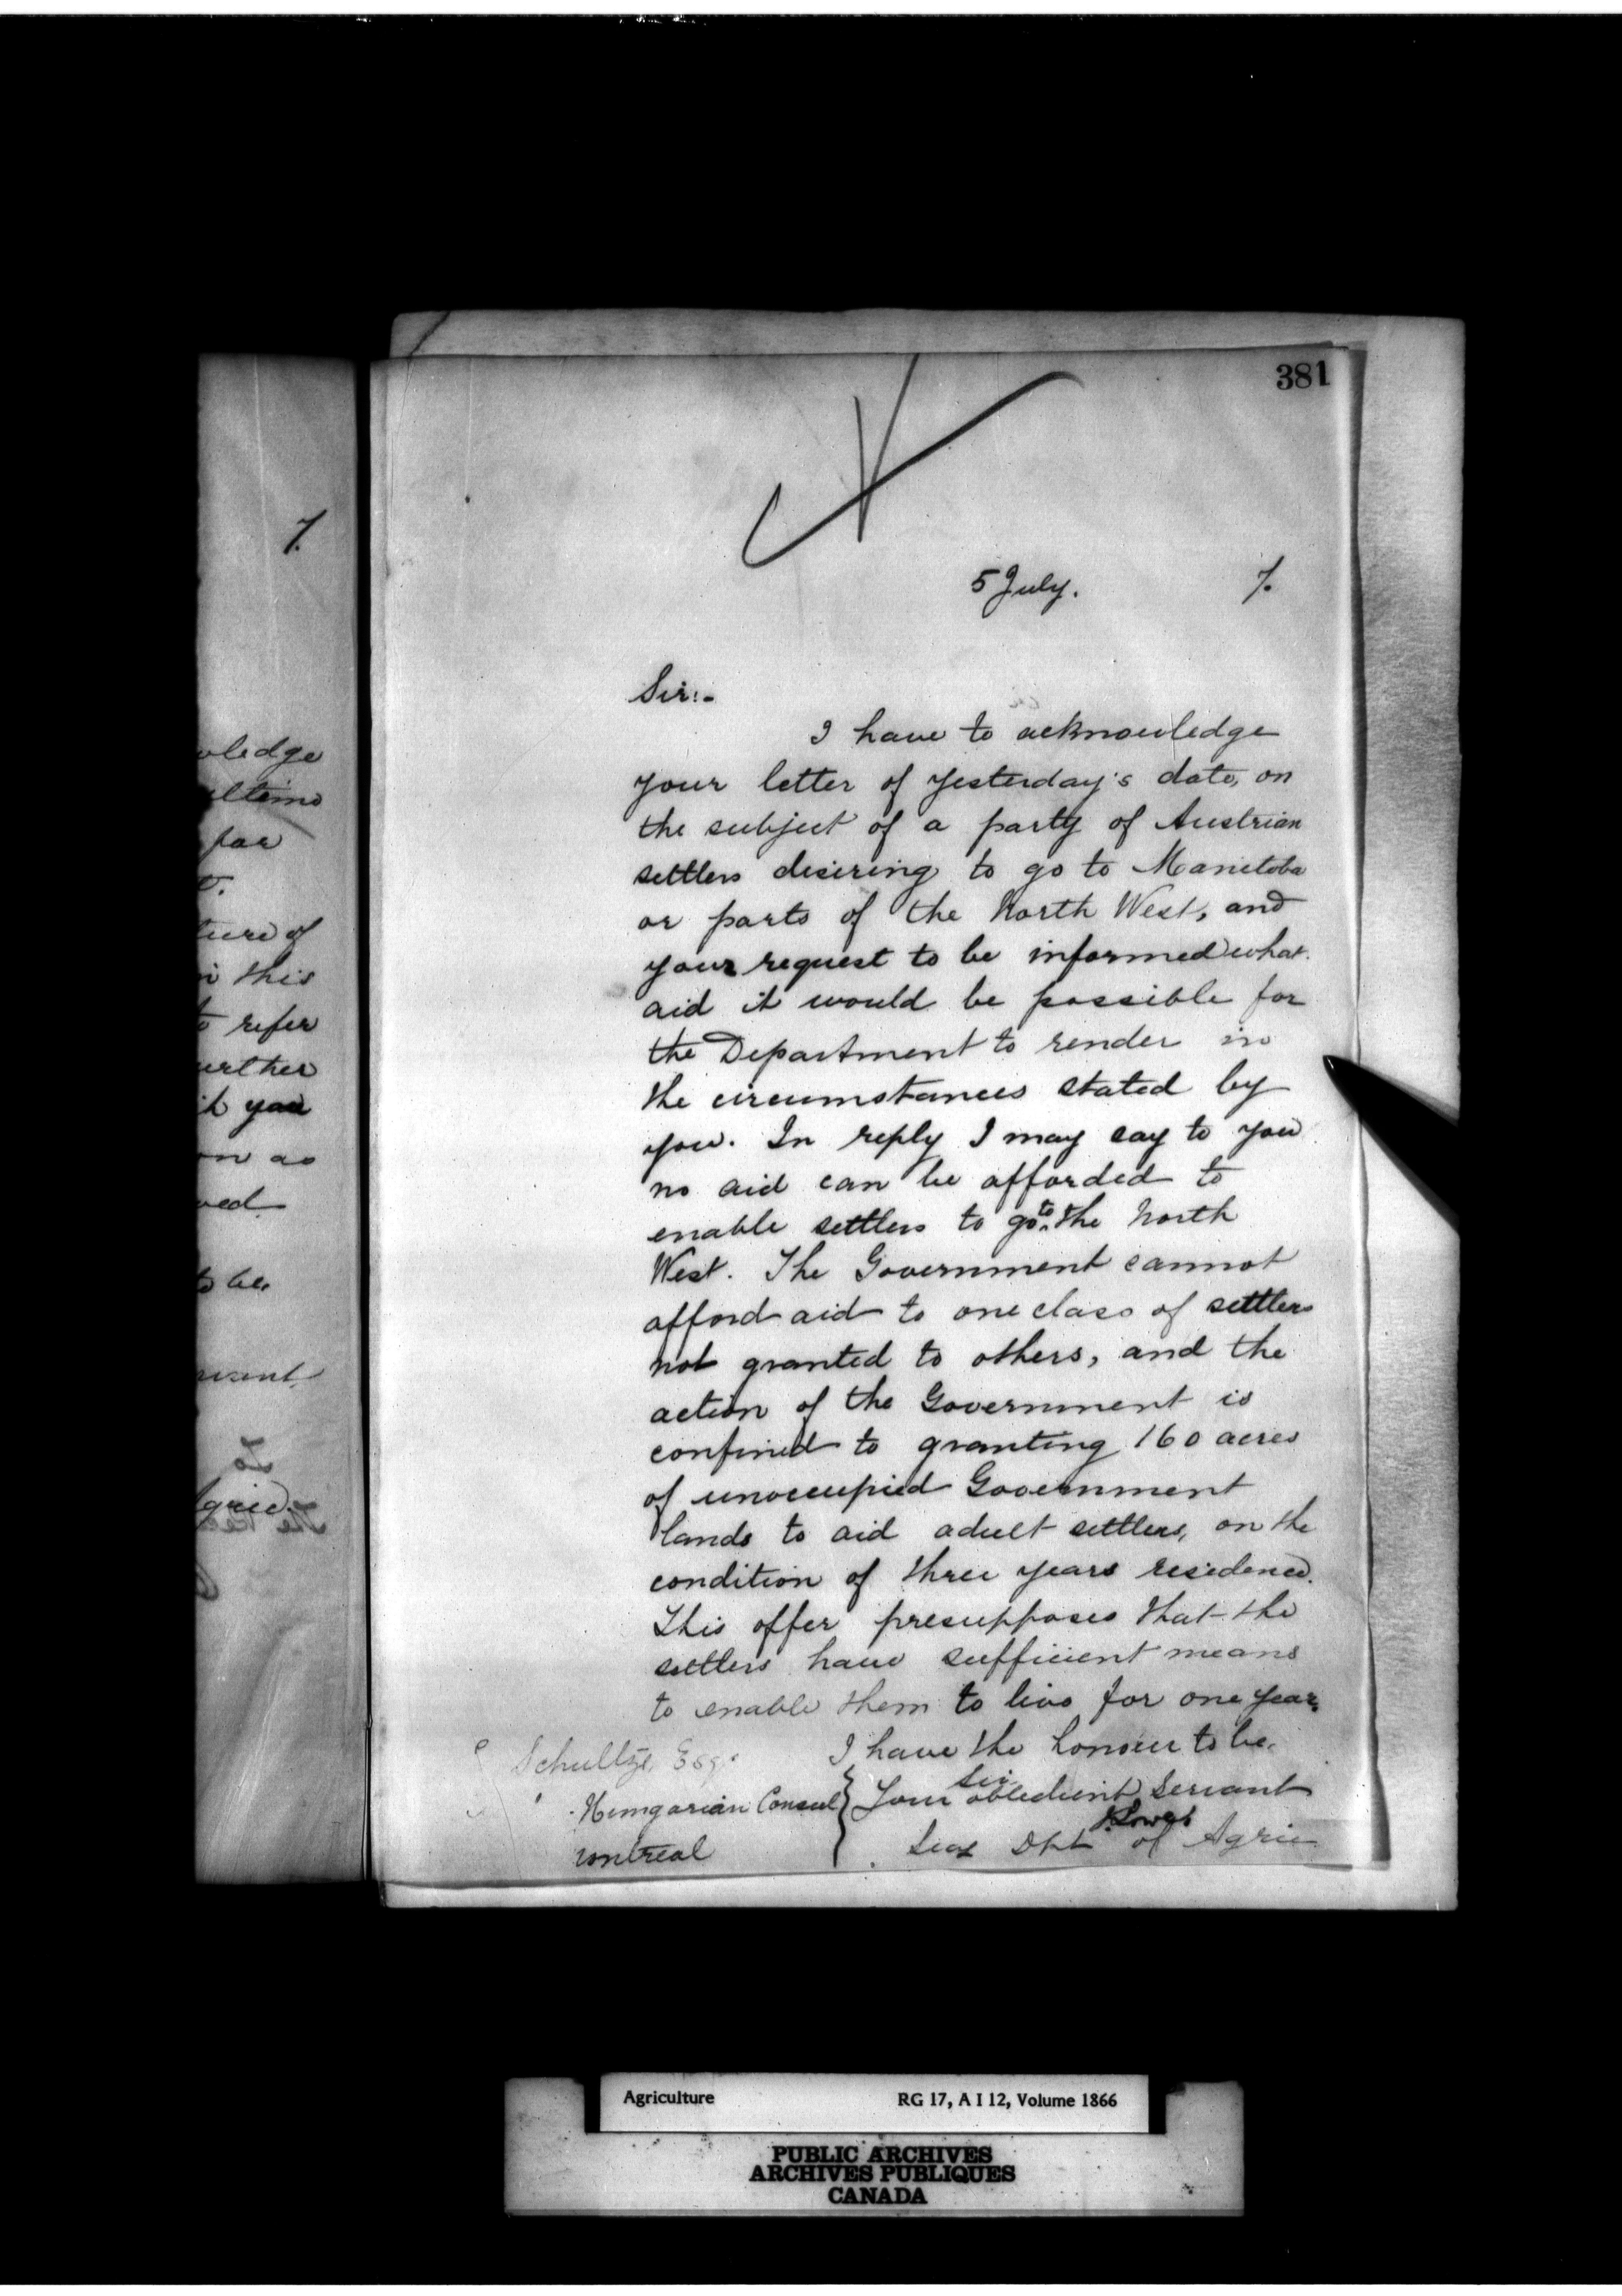 381
5 July. 7.
Sir:-
I have to acknowledge
your letter of yesterday's date, on
the subject of a party of Austrian
settlers desiring to go to Manitoba
or parts of the North West, and
your request to be informed what
aid it would be possible for
the Department to render in
the circumstances stated by
you. In reply I may say to you
no aid can be afforded to
enable settlers to go to the North
West. The Government cannot
afford aid to one class of settlers
not granted to others, and the
action of the Government is
confined to granting 160 acres
of unoccupied Government
lands to aid adult settlers, on the
condition of three years residence.
This offer presupposes that the
settlers have sufficient means
to enable them to live for one year.
I have the honour to be.
Sir
Your obedient Servant
J. Lowe
Secy Dpt of Agric
Schultze Esq.
Hungarian Consul
ontreal
7.
wledge
ultimo
for
ture of
this
to refer
urther
you
on as
ved.
to be,
gric.
Agriculture RG 17, A I 12, Volume 1866
PUBLIC ARCHIVES
ARCHIVES PUBLIQUES
CANADA